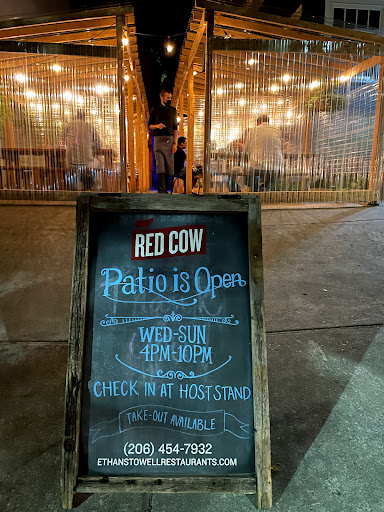 RED COW
Patio is Open
WED-SUN
4PM-10PM
CHECK IN AT HOST STAND
TAKE-OUT AVAILABLE
(206) 454-7932
ETHANSTOWELLRESTAURANTS.COM